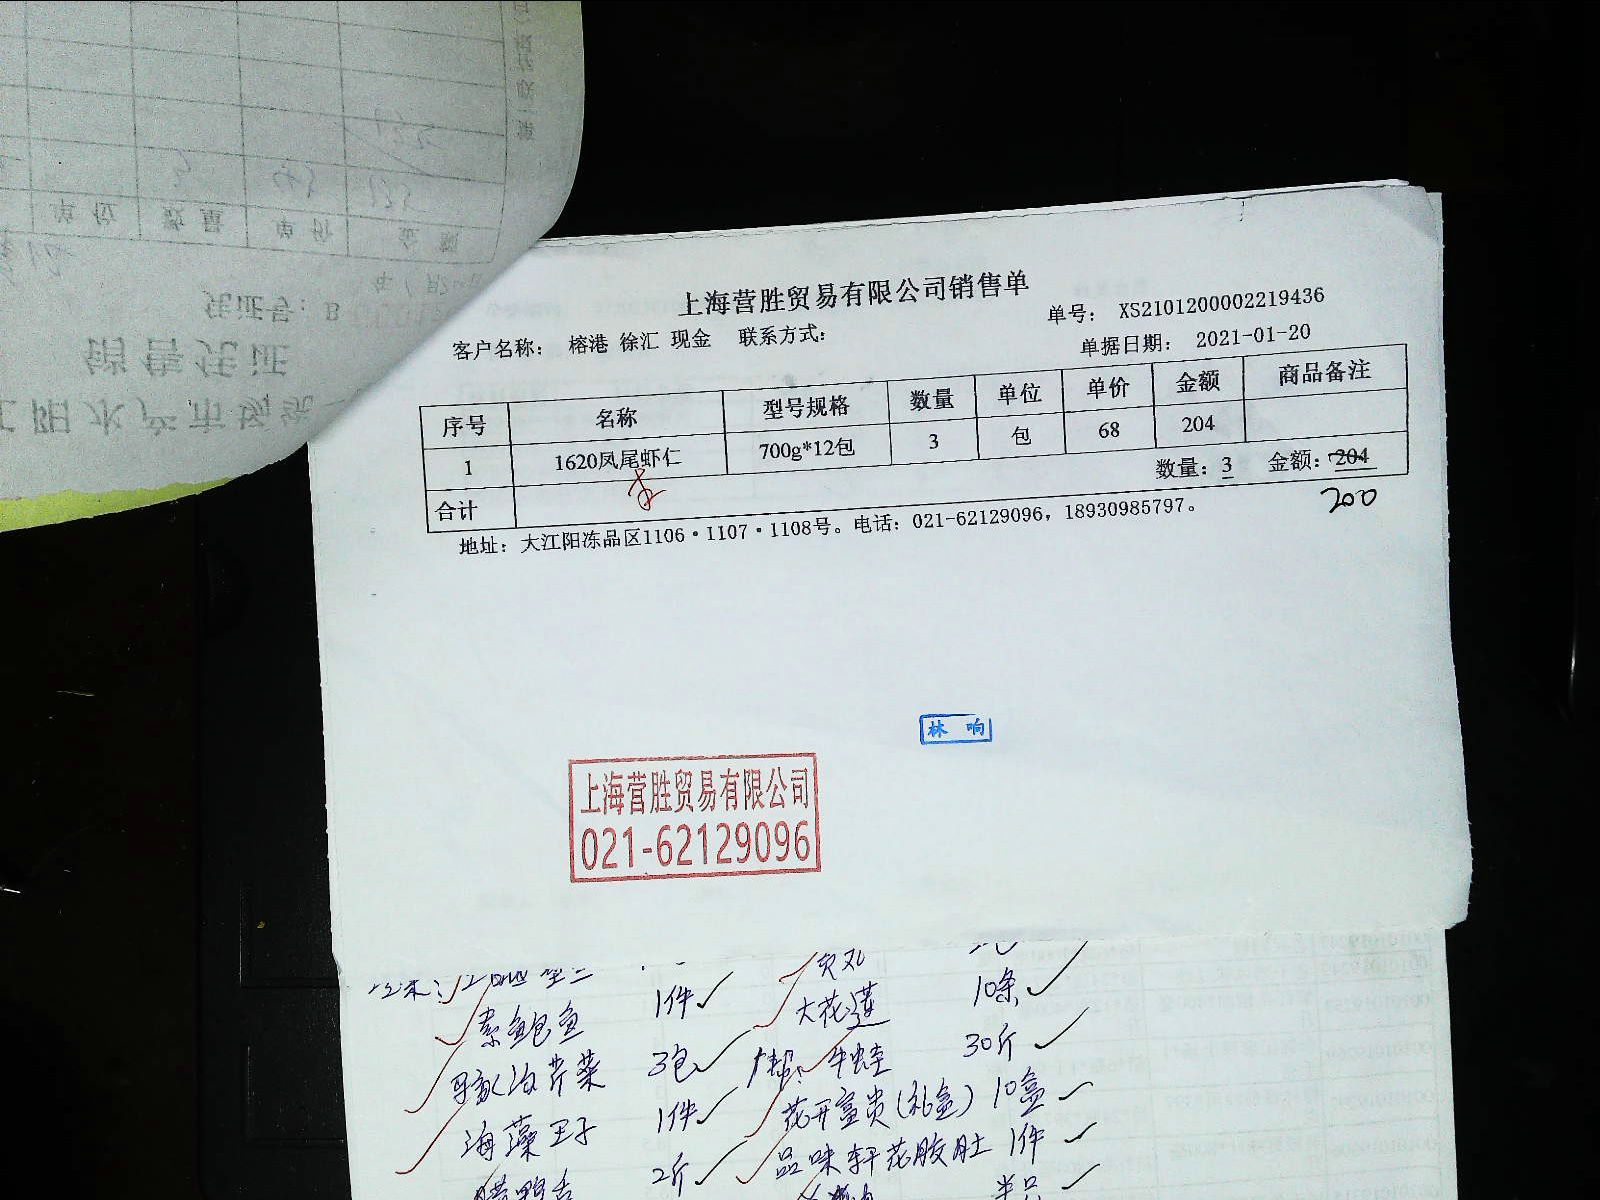 上海营胜贸易有限公司销售单
单号： XS2101200002219436
客户名称： 榕港 徐汇 现金 联系方式：
单据日期： 2021-01-20
序号 名称 型号规格 数量 单位 单价 金额 商品备注
1 1620凤尾虾仁 700g*12包 3 包 68 204
合计 数量：3 金额：204
200
地址：大江阳冻品区1106·1107·1108号。电话：021-62129096，18930985797。
林 响
上海营胜贸易有限公司
021-62129096
素鲍鱼 1件 大花莲 10条
3包 牛蛙 30斤
海藻王子 1件 花开富贵(礼盒) 10盒
2斤 品味轩花胶肚 1件
半只
单位 数量 单价 金额
凭证号：B
销售凭证
江阳水产市场统